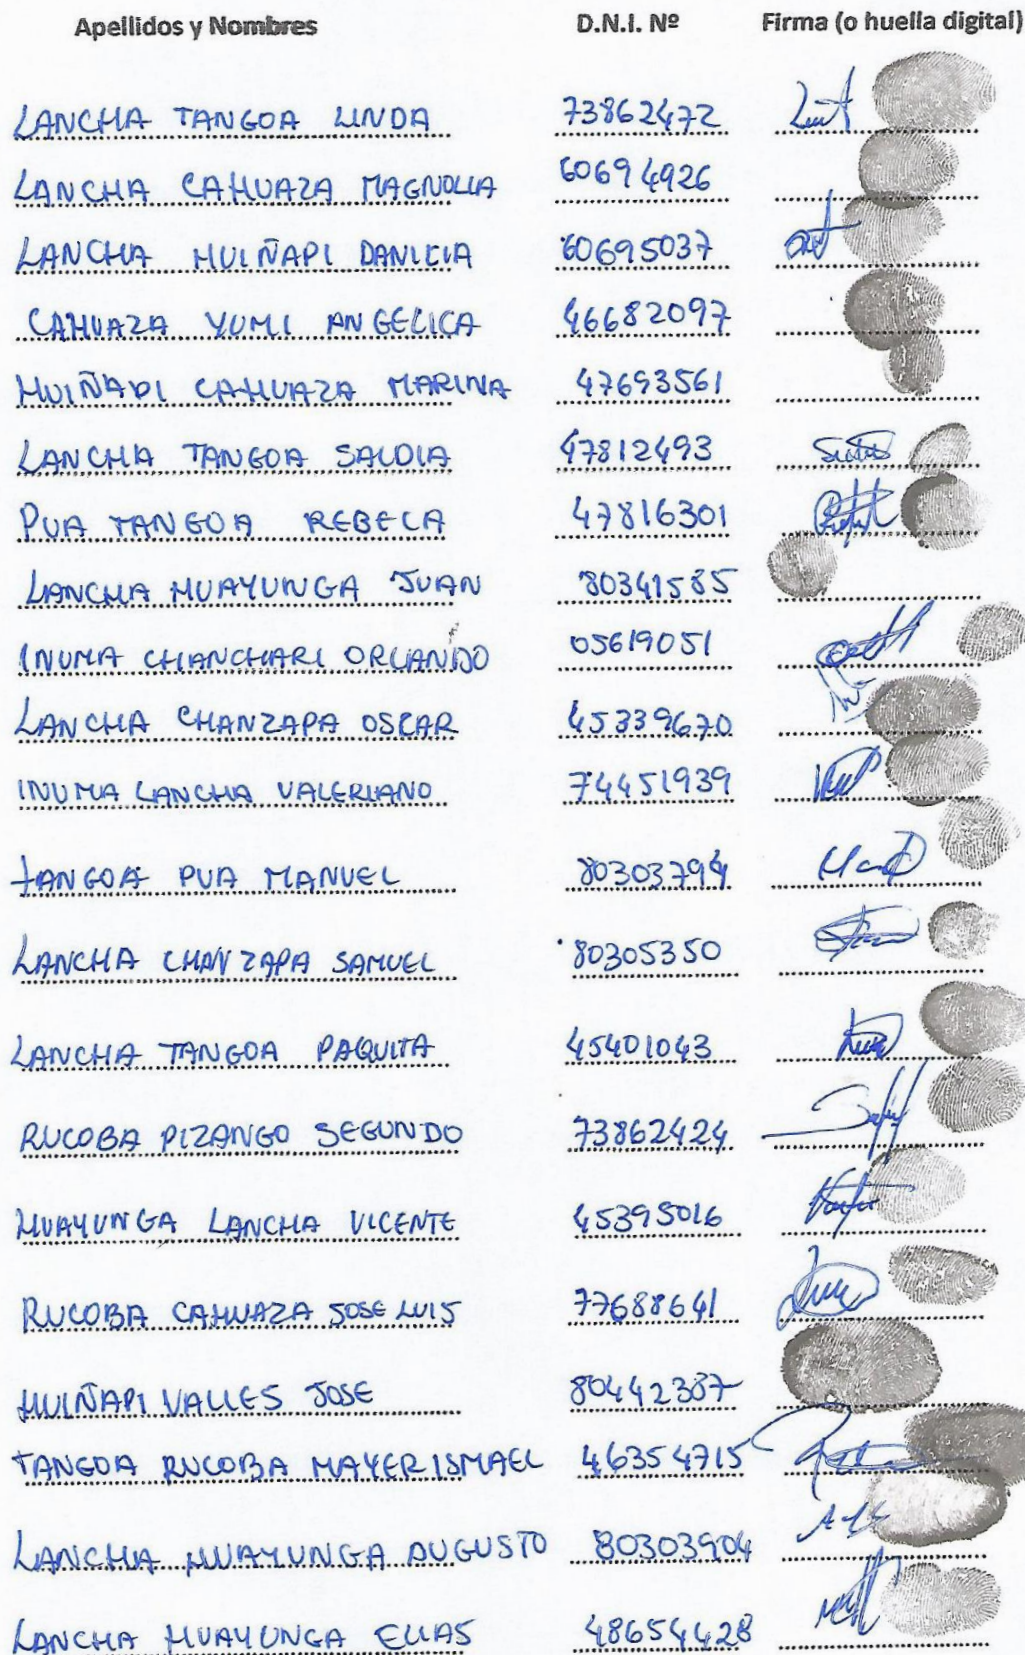 Apellidos y Nombres D.N.I. Nº Firma (o huella digital)
LANCHA TANGOA LINDA 73862472
LANCHA CAHUAZA MAGNOLIA 60694926
LANCHA HUIÑAPI DANICIA 60695037
CAHUAZA YUMI ANGELICA 46682097
HUIÑAPI CAHUAZA MARINA 47693561
LANCHA TANGOA SALDIA 47812493
PUA TANGOA REBECA 47816301
LANCHA HUAYUNGA JUAN 80341585
INUMA CHANCHARI ORLANDO 05619051
LANCHA CHANZAPA OSCAR 45339670
INUMA LANCHA VALERIANO 74451939
TANGOA PUA MANUEL 80303794
LANCHA CHANZAPA SAMUEL 80305350
LANCHA TANGOA PAQUITA 45401043
RUCOBA PIZANGO SEGUNDO 73862424
HUAYUNGA LANCHA VICENTE 45395016
RUCOBA CAHUAZA JOSE LUIS 77688641
HUIÑAPI VALLES JOSE 80442387
TANGOA RUCOBA MAYER ISMAEL 46354715
LANCHA HUAYUNGA AUGUSTO 80303904
LANCHA HUAYUNGA ELIAS 48654428